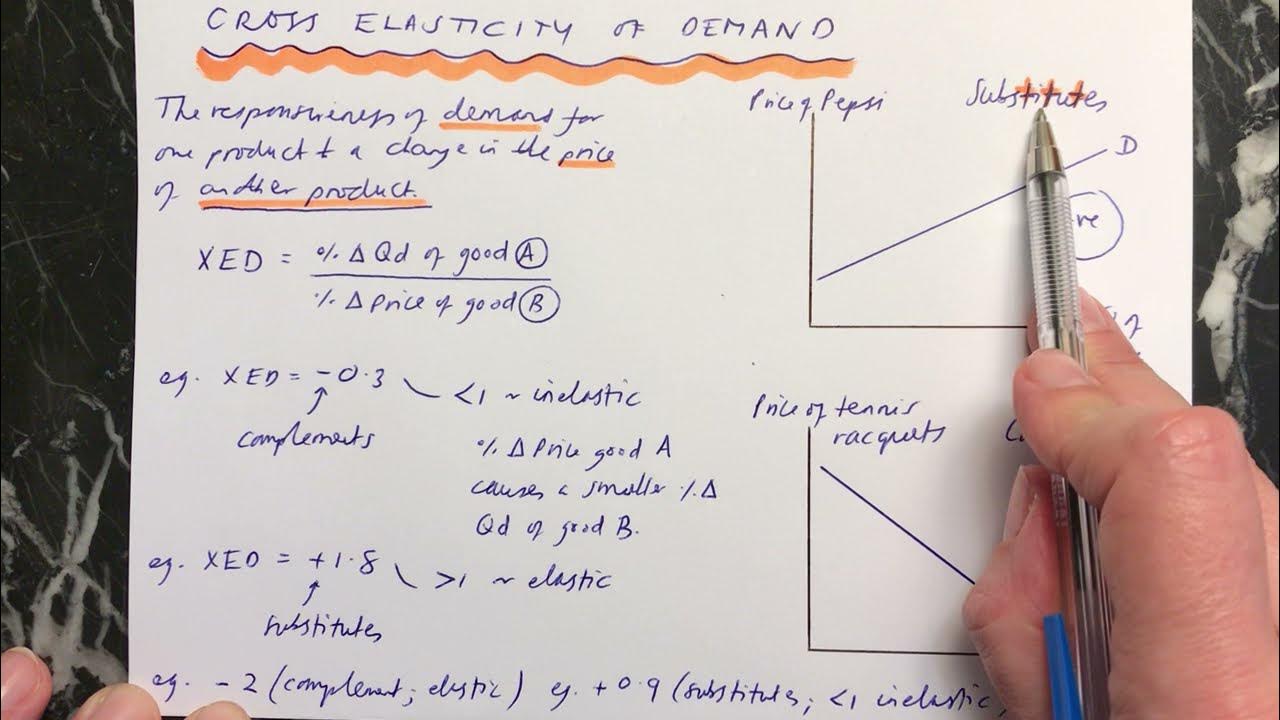 CROSS ELASTICITY OF DEMAND
The responsiveness of demand for
one product to a change in the price
of another product.
XED = % Δ Qd of good A
% Δ price of good B
eg. XED = -0.3
<1 ~ inelastic
complements
% Δ Price good A
causes a smaller % Δ
Qd of good B.
eg. XED = +1.8
>1 ~ elastic
substitutes
eg. -2 (complement; elastic) eg. +0.9 (substitutes; <1 inelastic)
Price of Pepsi
Substitutes
D
+ve
of
Price of tennis
racquets